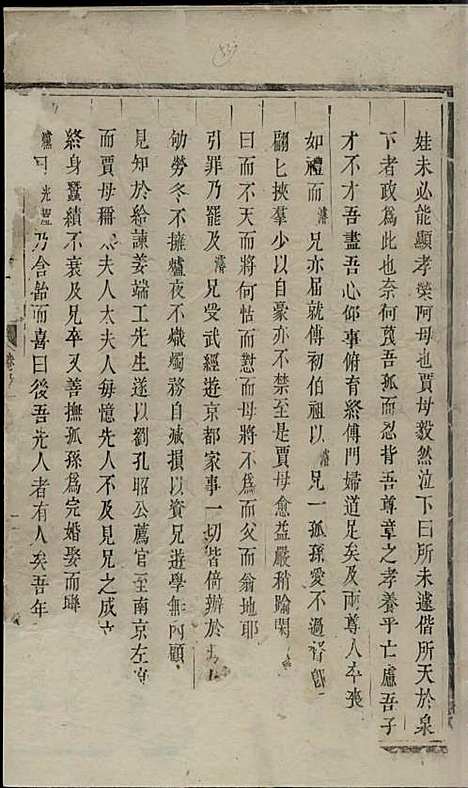 娃未必能顯孝榮阿母也賈母毅然泣下曰所未遽偕所天於泉
下者政為此也奈何蔑吾孤而忍背吾尊章之孝養乎亡慮吾子
才不才吾盡吾心仰事俯育終傅門婦道足矣及兩尊人卒喪
如禮而濬兄亦屆就傅初伯祖以濬兄一孤孫愛不過督既
翩匕挾羣少以自豪亦不禁至是賈母愈益嚴稍踰閑
曰而不天而將何怙而懟而母將不為而父而翁地耶
引罪乃罷及濬兄受武經遊京都家事一切皆倚辦於
劬勞冬不擁爐夜不熾燭務自減損以資兄遊學無內顧
見知於給諫姜端工先生遂以劉孔昭公薦官至南京左
而賈母稱太夫人太夫人每憶先人不及見兄之成立
終身蠶績不衰及兄卒又善撫孤孫為完婚娶而曄
爌光 乃含飴而喜曰後吾先人者有人矣吾年